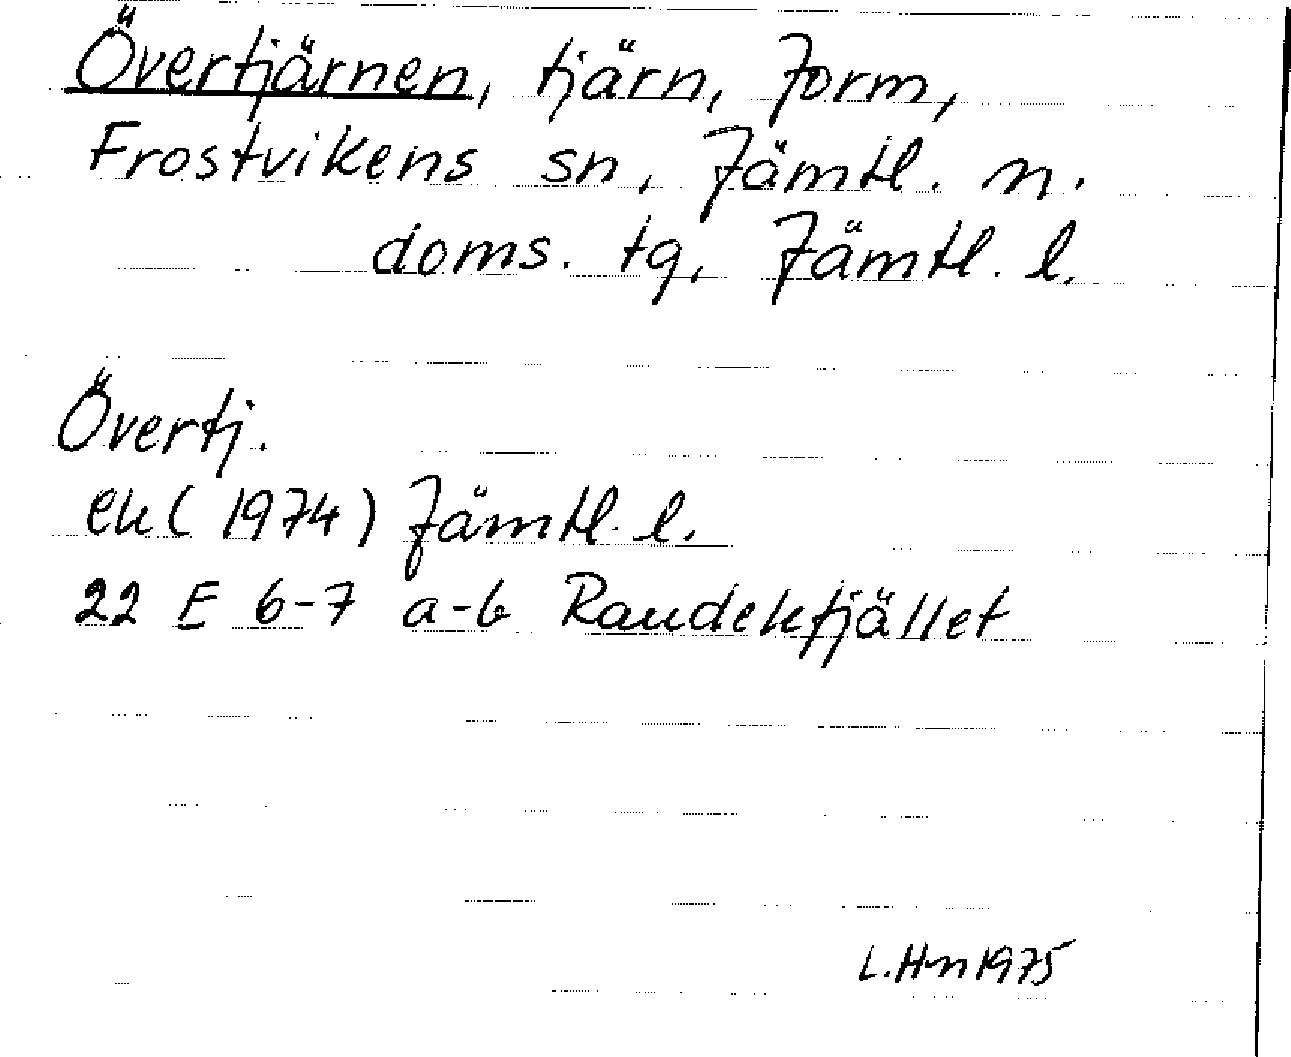 Övertjärnen, tjärn, Jorm,
Frostvikens sn, Jämtl. n.
doms. tg, Jämtl. l.
Övertj.
ek (1974) Jämtl. l.
22 E 6-7 a-b Raudekfjället
L.H-n 1975